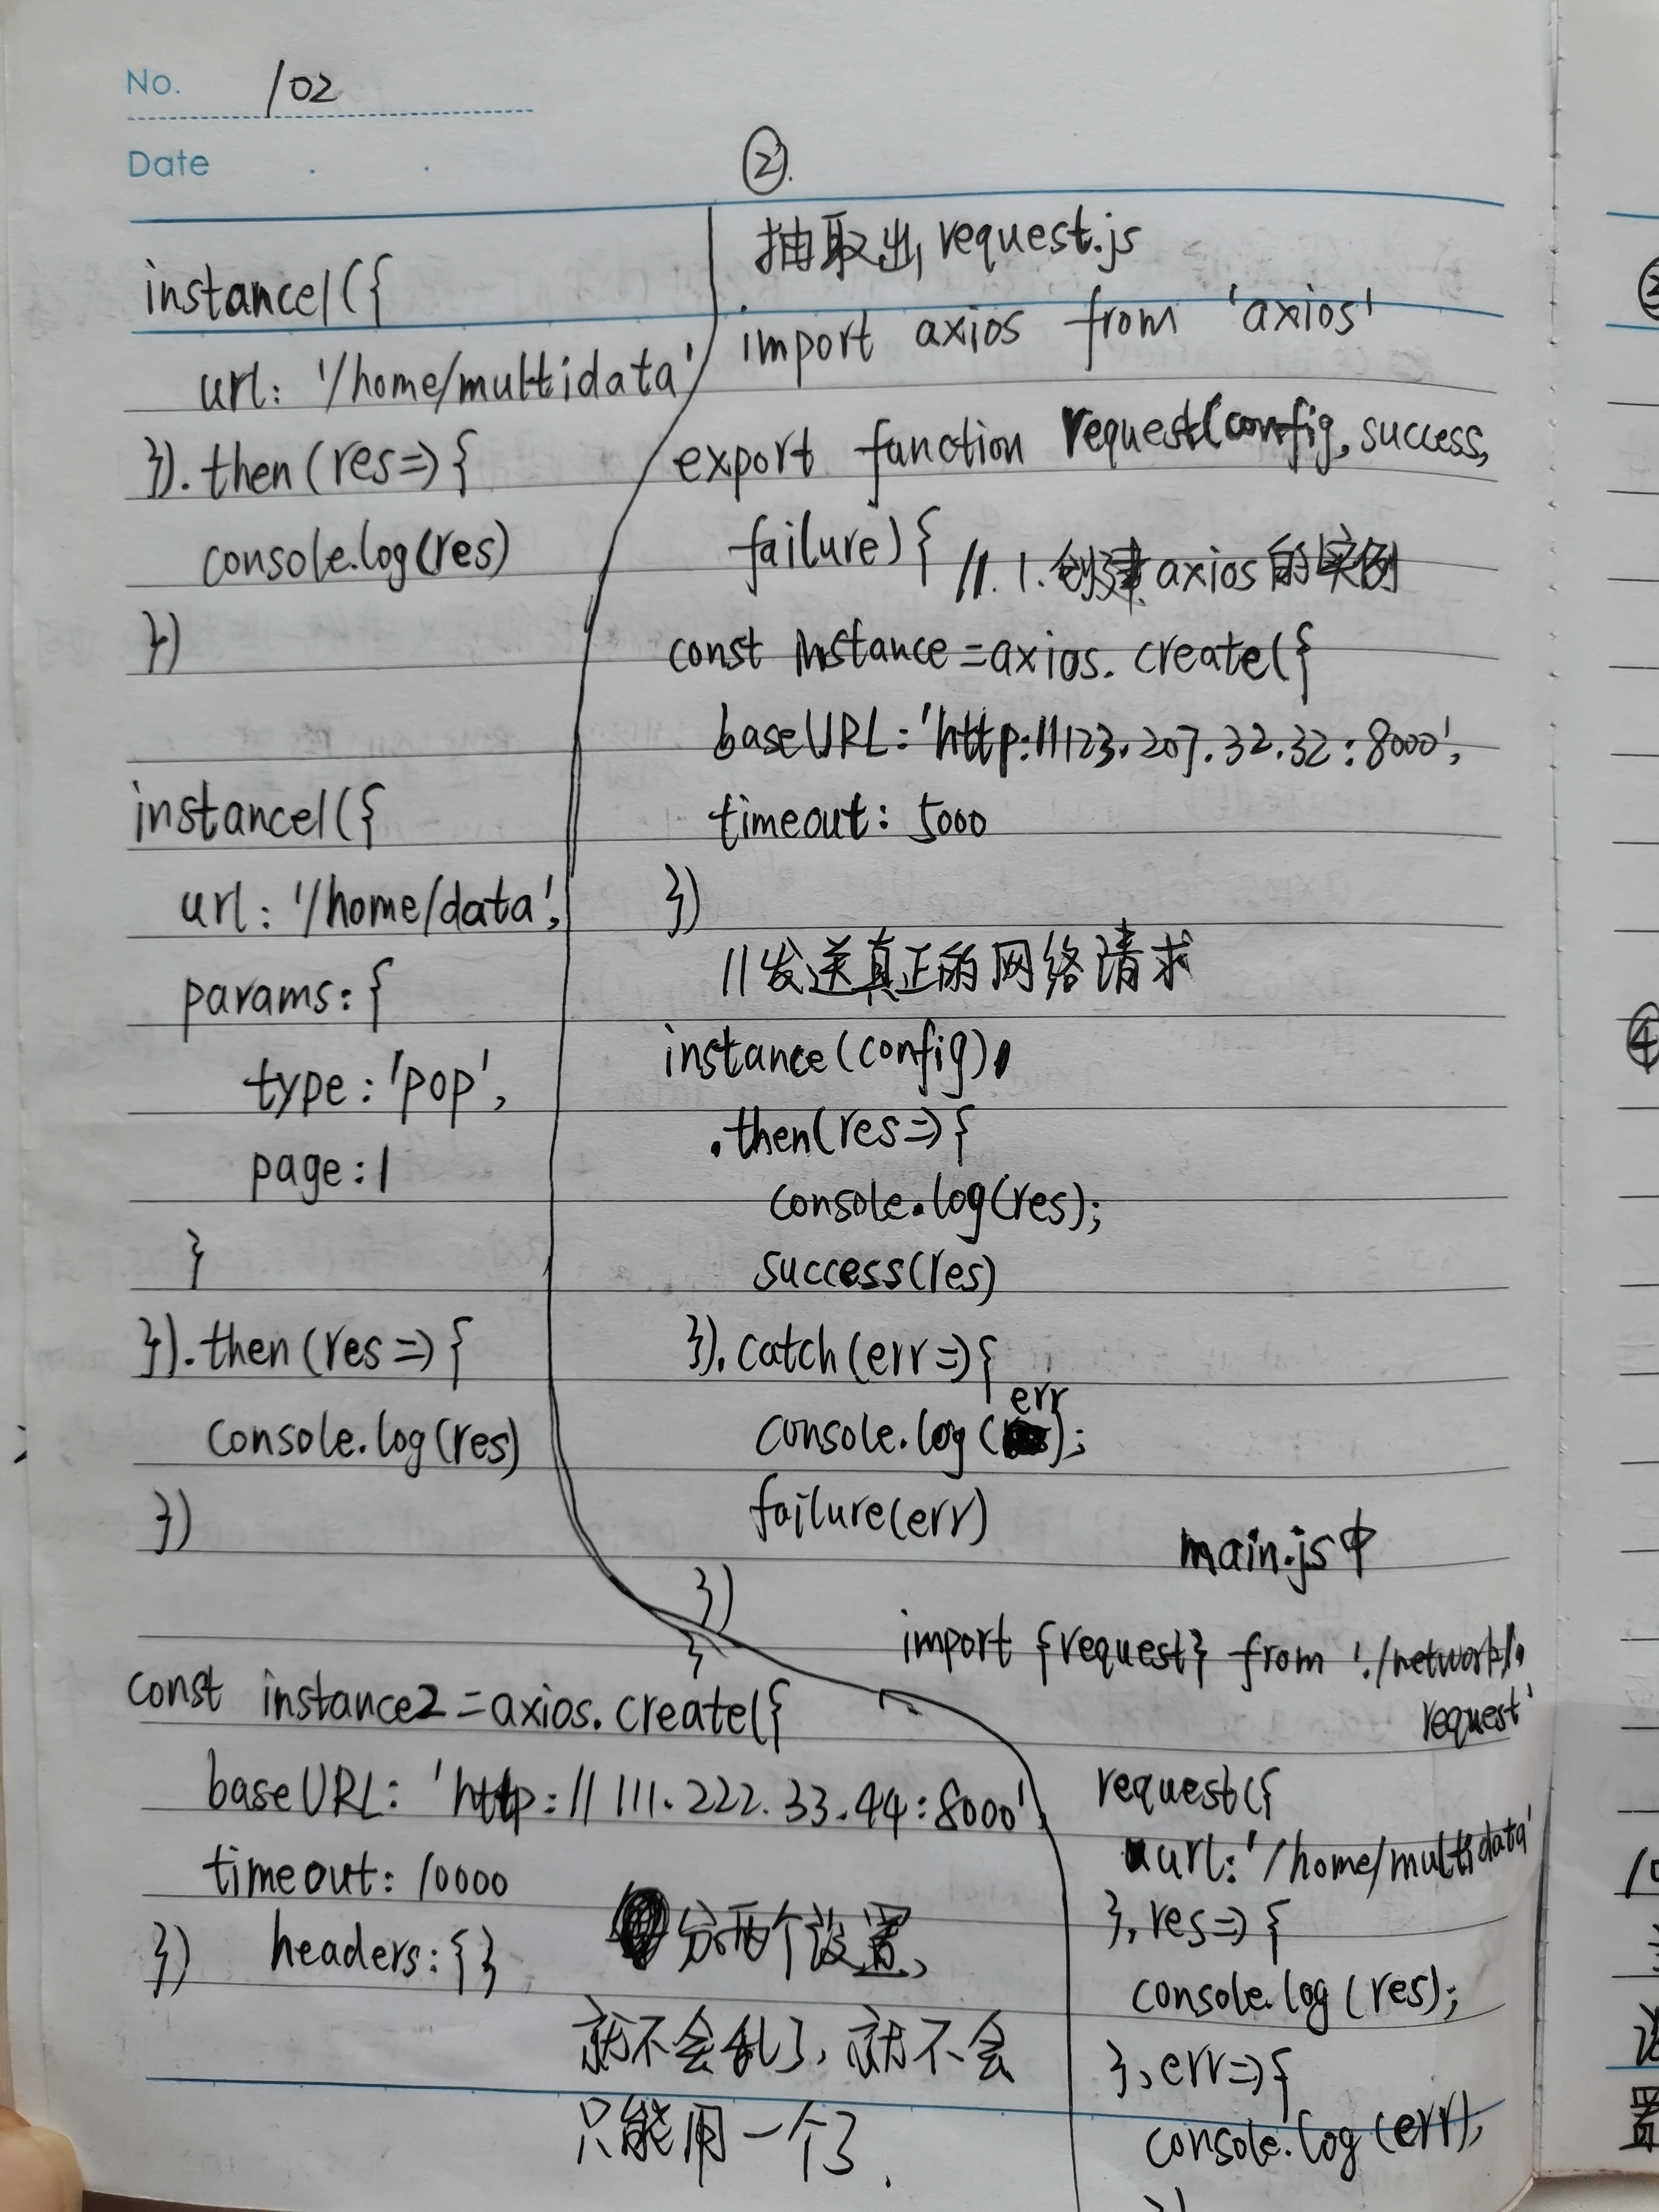 No. 102
Date
instance1({
url: '/home/multidata'
}).then(res=>{
console.log(res)
})
instance1({
url: '/home/data',
params: {
type: 'pop',
page: 1
}
}).then(res=>{
console.log(res)
})
const instance2 = axios.create({
baseURL: 'http://111.222.33.44:8000',
timeout: 10000
}) headers: { }
分两个设置、
就不会乱了,就不会
只能用一个了.
②.
抽取出request.js
import axios from 'axios'
export function request(config, success,
failure) { // 1.创建axios的实例
const instance = axios.create({
baseURL: 'http://123.207.32.32:8000',
timeout: 5000
})
//发送真正的网络请求
instance(config)
.then(res=>{
console.log(res);
success(res)
}).catch(err=>{
console.log(err);
failure(err)
})
}
main.js中
import {request} from './network/
request'
request({
url: '/home/multidata'
}, res=>{
console.log(res);
}, err=>{
console.log(err);
})
④
置